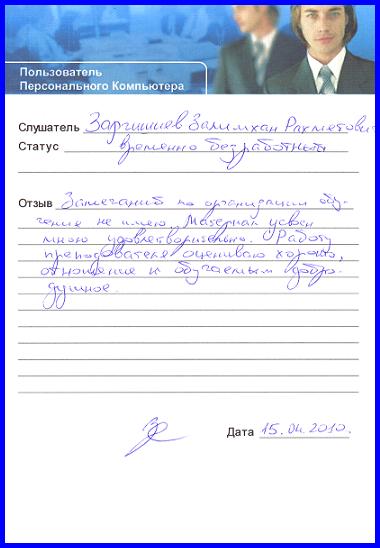 Пользователь
Персонального Компьютера
Слушатель Залимхан Рахметович
Статус временно безработный
Отзыв Замечаний по организации обу-
чения не имею. Материал усвоен
мною удовлетворительно. Работу
преподавателя оцениваю хорошо,
отношение к обучаемым добро-
душное.
Дата 15.04.2010.